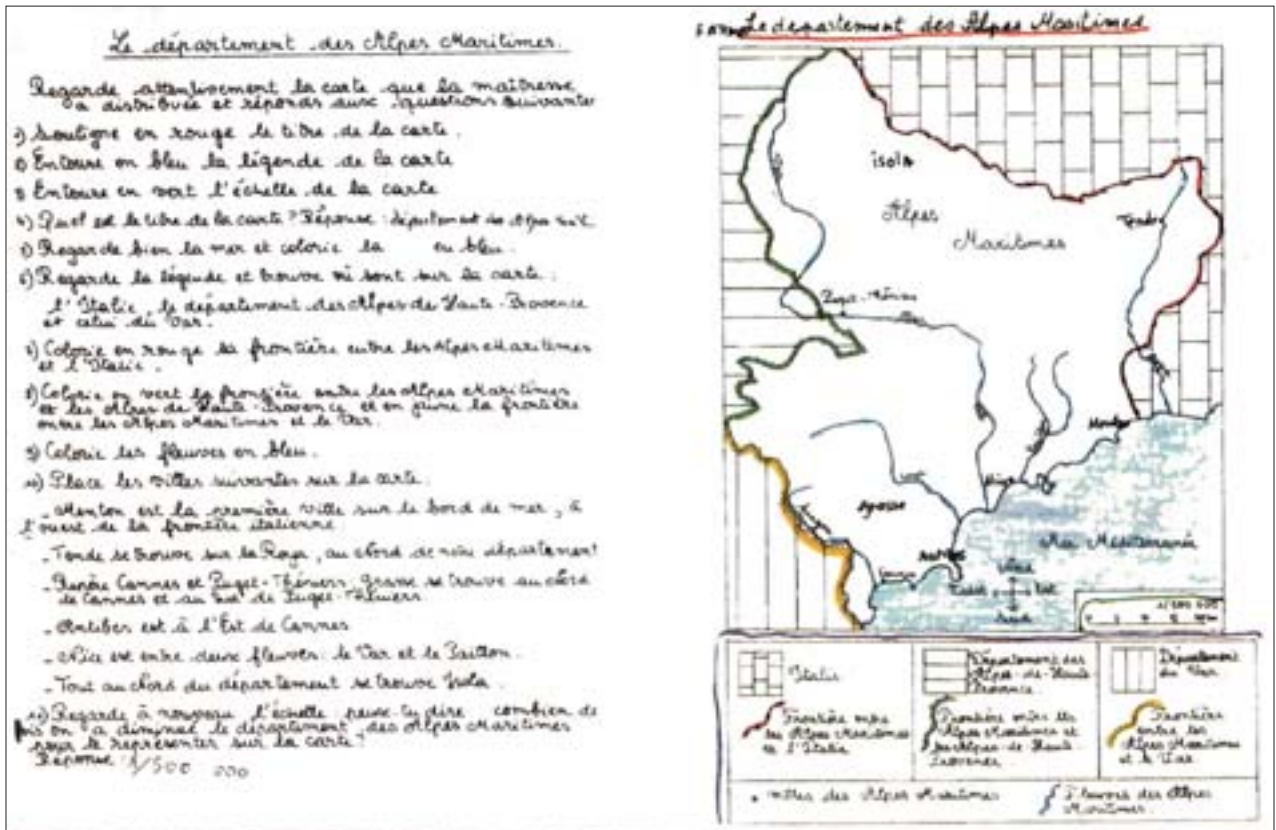 Le département des Alpes Maritimes.
Regarde attentivement la carte que la maîtresse
a distribuée et réponds aux questions suivantes
1) Souligne en rouge le titre de la carte.
2) Entoure en bleu la légende de la carte
3) Entoure en vert l'échelle de la carte
4) Quel est le titre de la carte ? Réponse : département des Alpes
5) Regarde bien la mer et colorie la en bleu.
6) Regarde la légende et trouve où sont sur la carte :
l'Italie, le département des Alpes de Haute-Provence
et celui du Var.
7) Colorie en rouge la frontière entre les Alpes Maritimes
et l'Italie.
8) Colorie en vert la frontière entre les Alpes Maritimes
et les Alpes de Haute-Provence et en jaune la frontière
entre les Alpes Maritimes et le Var.
9) Colorie les fleuves en bleu.
10) Place les villes suivantes sur la carte.
- Menton est la première ville sur le bord de mer, à
l'ouest de la frontière italienne.
- Tende se trouve sur la Roya, au Nord de département
- Repère Cannes et Puget-Théniers. Grasse se trouve au Nord
de Cannes et au Sud de Puget-Théniers.
- Antibes est à l'Est de Cannes
- Nice est entre deux fleuves : le Var et le Paillon.
- Tout au Nord du département se trouve Isola.
11) Regarde à nouveau l'échelle peux-tu dire combien de
fois on a diminué le département des Alpes Maritimes
pour le représenter sur la carte ?
Réponse : 1/500 000
Le departement des Alpes Maritimes
isola
Alpes
Maritimes
Tende
Puget-Théniers
Var
Roya
Menton
Var
Nice
Loup
Antibes
Cannes
Mer Méditerranée
Nord
Ouest
Est
Sud
1/500 000
Italie
Département des
Alpes-de-Haute
Provence
Département
du Var
Frontière entre
les Alpes Maritimes
et l'Italie
Frontière entre les
Alpes Maritimes et
les Alpes-de-Haute
Provence
Frontière
entre les
Alpes Maritimes
et le Var.
villes des Alpes Maritimes
Fleuves des Alpes
Maritimes